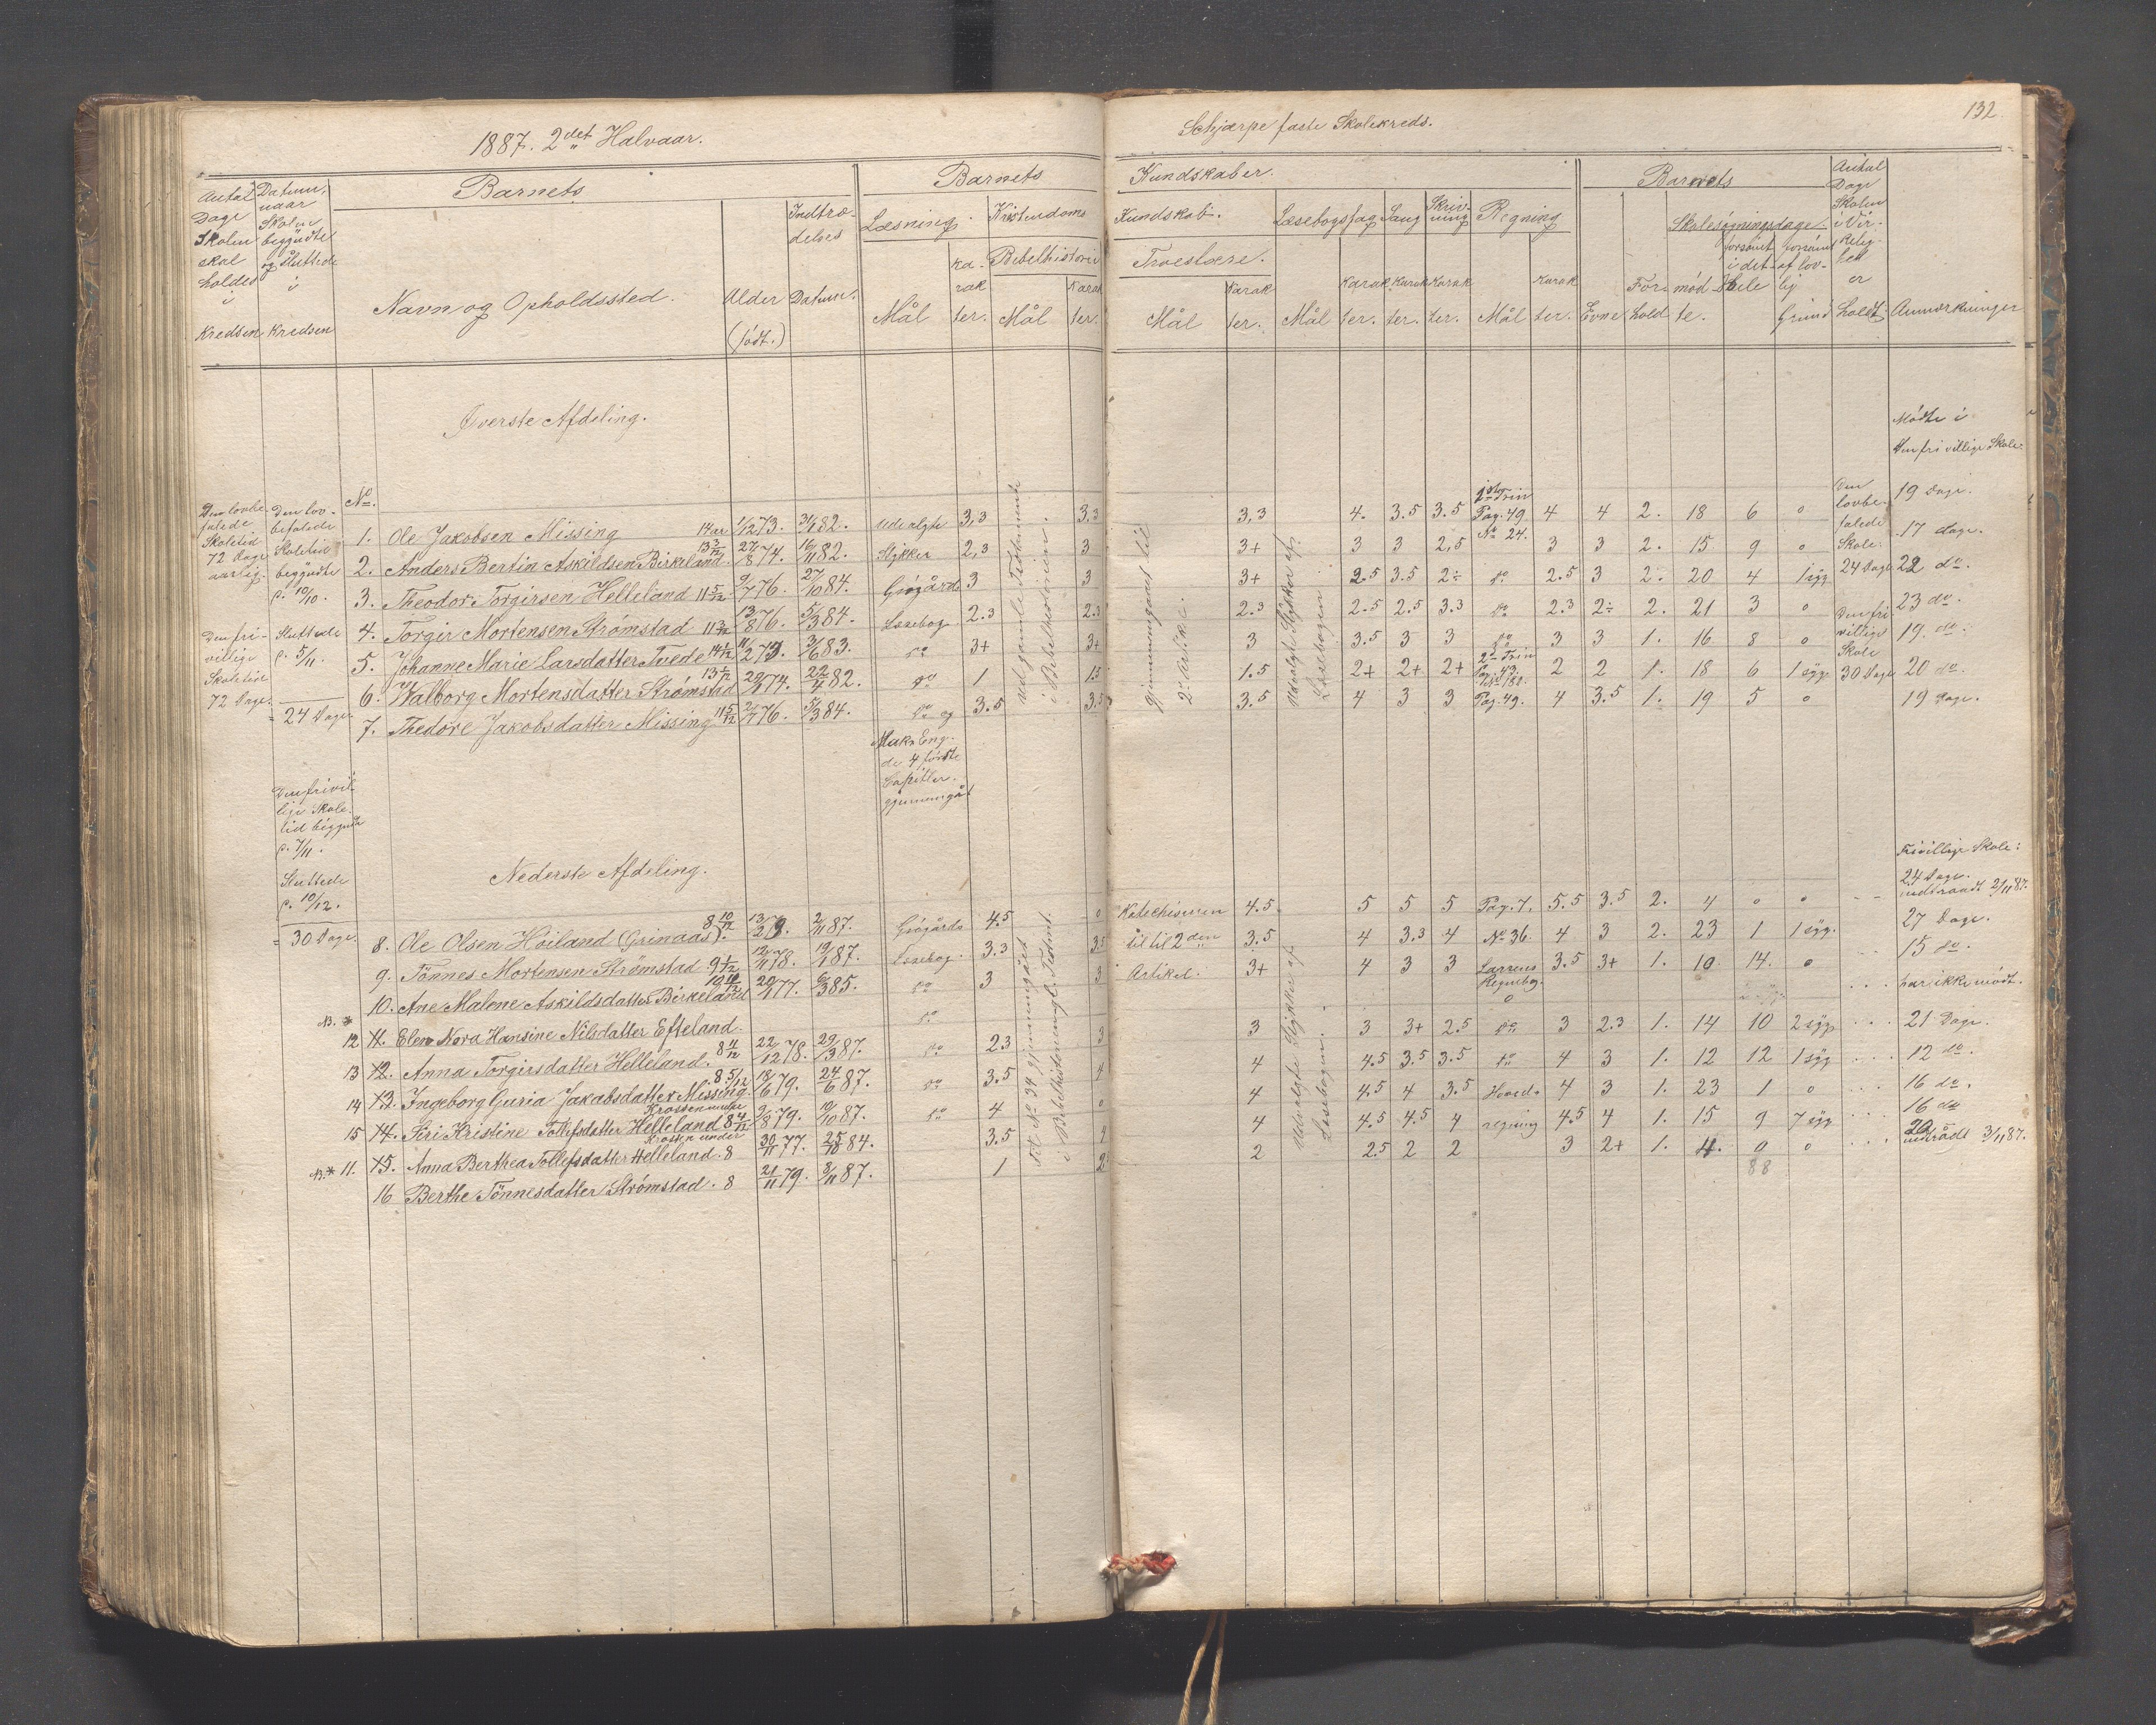 1887. 2det Halvaar.
Schjærpe faste Skolekreds.
132
Antal Dage Skolen skal holdes i Kredsen
Datum, naar Skolen begyndte og sluttede i Kredsen
Barnets
Navn og Opholdssted.
Alder (født.)
Indtrædelses Datum.
Barnets
Kundskaber.
Læsning.
Mål
Karakter.
Kristendoms
Kundskab.
Bibelhistorie
Mål
Karakter.
Troeslære.
Mål
Karakter.
Læsebogsfag
Mål
Karakter.
Sang
Karakter.
Skrivning
Karakter.
Regning
Mål
Karakter.
Barnets
Evne
Forhold
Skolesøgningsdage
mødte.
forsømt i det Hele
forsømt af lovlig Grund
Antal Dage Skolen i Virkelighed er holdt.
Anmærkninger
Øverste Afdeling.
Mødte i
den frivillige Skole:
No.
Den lovbefalede Skoletid 72 Dage aarlig.
Den lovbefalede Skoletid begyndte d. 10/10.
Sluttede d. 5/11.
= 24 Dage.
Den frivillige Skoletid 72 Dage.
1. Ole Jakobsen Missing 14 aar 1/12 73. 31/1 82. Udvalgte 3,3 3.3 3,3 4. 3.5 3.5 Pag. 49 4 4 2. 18 6 0 19 Dage.
2. Anders Bertin Askildsen Birkeland 13 3/12 27/8 74. 16/11 82. Stykker 2,3 3 3+ 3 3 2,5 No 24. 3 3 2. 15 9 0 17 dage.
3. Theodor Torgirsen Helleland 11 5/12 9/7 76. 27/10 84. Giogårds 3 3 3+ 2.5 3.5 2÷ do 2.5 3 2. 20 4 1 syg. 22 do.
4. Torgir Mortensen Strømstad 11 3/12 13/8 76. 5/3 84. Læsebog 2.3 2.3 2.3 2.5 2.5 3.3 do 2.3 2÷ 2. 21 3 0 23 do.
5. Johanne Marie Larsdatter Tvede 14 1/12 11/2 73. 3/6 83. do 3+ 3+ 3 3.5 3 3 do 3 3 1. 16 8 0 19. do.
6. Walborg Mortensdatter Strømstad 22/4 82. do 1 1.5 1.5 2+ 2+ 2+ 2 2 1. 18 6 1 syg 20 do
7. Thedore Jakobsdatter Missing 11 5/12 2/7 76. 5/3 84. do og 3.5 3.5 3.5 4 3 3 Pag. 49. 4 3.5 1. 19 5 0 19 Dage.
Udgamle Testamente i Bibelhistorien.
gjennemgaaet til 2. Artikel.
Udvalgte Stykker af Læsebogen.
Den lovbefalede Skole. 24 Dage
Den frivillige Skole 30 Dage
de 4 første Capitler gjennemgåt
Den frivillige Skoletid begyndte d. 7/11.
Sluttede d. 10/12.
= 30 Dage.
Nederste Afdeling.
Frivillige Skole:
24 Dage.
indtraadt 2/11 87.
8. Ole Olsen Høiland (Grinaas). 8 10/12 2/11 87. Giogårds 4.5 0 Katechismen 4.5 5 5 5 Pag. 7. 5.5 3.5 2. 4 0 0
9. Tönnes Mortensen Strømstad. 9 1/12 12/11 78. 19/1 87. Læsebog. 3.3 3.5 til til 2den 3.5 4 3.3 4 No 36. 4 3 2. 23 1 1 syg. 27 Dage.
10. Ane Malene Askildsdatter Birkeland 10 10/12 20/1 77. 6/3 85. do 3 3 Artikel. 3+ 4 3 3 3.5 3+ 1. 10 14. 0 15 do.
NB. *
12 11. Elen Nora Hansine Nilsdatter Efteland. do har ikke mødt.
13 12. Anna Torgirsdatter Helleland. 8 11/12 22/12 78. 29/3 87. do 2.3 3 3 3 3+ 2.5 do 3 2.3 1. 14 10 2 syg 21 Dage.
14 13. Ingeborg Guria Jakobsdatter Missing. 8 5/12 18/6 79. 24/6 87. do 3.5 4 4 4.5 3.5 3.5 do 4 3 1. 12 12 1 syg 12 do.
Krossen under
15 14. Siri Kristine Tollefsdatter Helleland 8 4/12 9/8 79. 19/10 87. do 4 0 4 4.5 4 3.5 Hoved- 4 3 1. 23 1 0 16 do.
Krossen under
NB.* 11. 15. Anna Berthea Tollefsdatter Helleland. 8 30/11 77. 25/10 84. 3.5 4 4.5 4.5 4 regning 4.5 4 1. 15 9 7 syg 16 do
16 Berthe Tönnesdatter Strømstad. 8 21/11 79. 3/11 87. 1 2 2 2.5 2 2 3 2+ 1. 4. 0 0 indtrådt 3/11 87.
88
Til No 34 gjennemgået i Bibelhistorien gl. Testmt.
Udvalgte Stykker af Læsebogen.